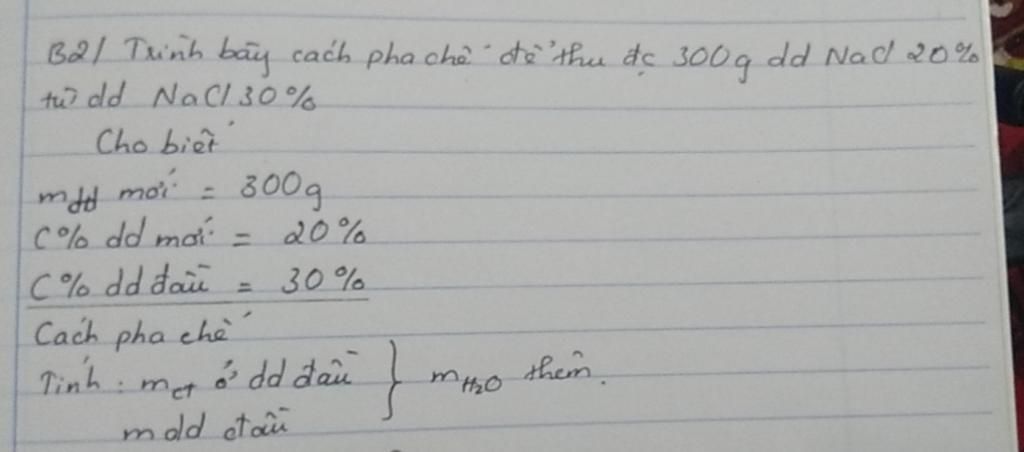 B2/ Trình bày cách pha chế để thu đc 300g dd NaCl 20%
từ dd NaCl 30%
Cho biết
mdd mới = 300g
C% dd mới = 20%
C% dd đầu = 30%
Cách pha chế
Tính : mct ở dd đầu } mH2O thêm.
mdd đầu